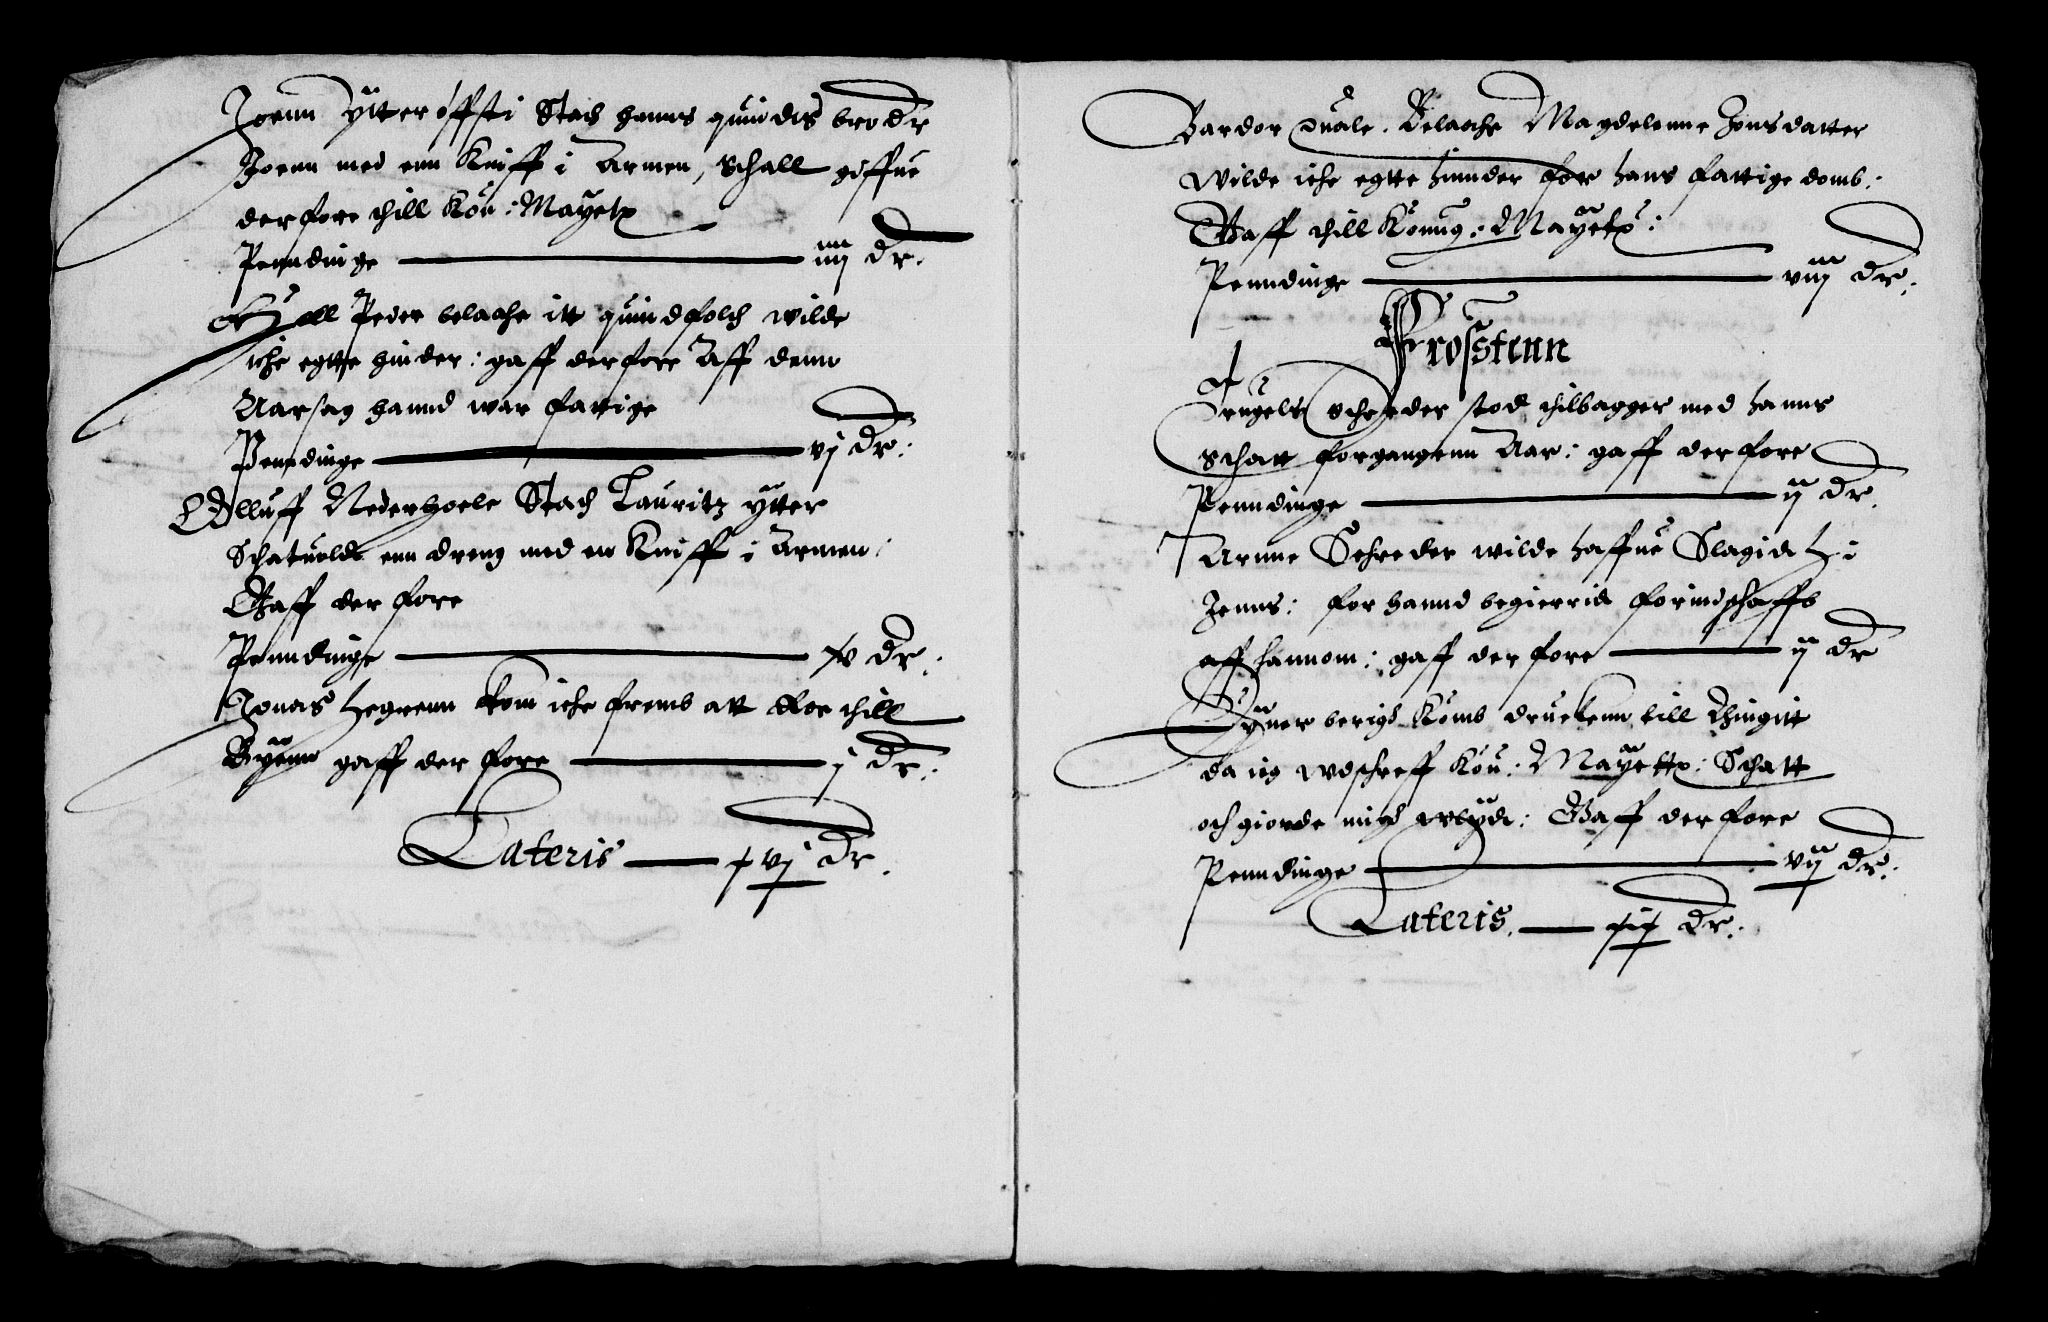 Joenn ytterøffsti Stach hanns quindis brodr
Joenn med enn Kniff i Armen, schall giffue
derfore thill Kon: Mayetz
Penndinge — iiij dr.
Kield Peder belaahe itt quindfolch wilde
iche egtte hinder: gaff derfore Aff denn
Aarsag hannd war fattige
Penndinge — vj dr:
Olluff Nederhoele Stach Lauritz ytter
Schatuolds enn dreng med en Kniff i Armen:
Gaff der fore
Penndinge — xv dr:
Jonas Hegrenn kom iche fremb att Roe thill
Byenn gaff der fore — j dr:
Lateris — xvj dr.
Bardor Quale. Belaahe Magdelenne Jonsdatter
wilde iche egtte hinnder for hans fattige domb:
Gaff thill Konng: Mayetz:
Penndinge — viij dr:
Frosstenn
Trugels Schreder stod thilbagger med hanns
Schatt forgangenn Aar: gaff der fore
Penndinge — ij dr.
Arnne Schreder wilde haffue Slagid H i
Jenns: for hannd begierrid forindschaffb
aff hannom: gaff der fore — ij dr
Eyner berigs Komb druckenn till Thingitt
da ieg wdschreff Kon: Mayettz: Schatt
och giorde migh wlyd: Gaff der fore
Penndinge — vij dr:
Lateris. — xix dr: